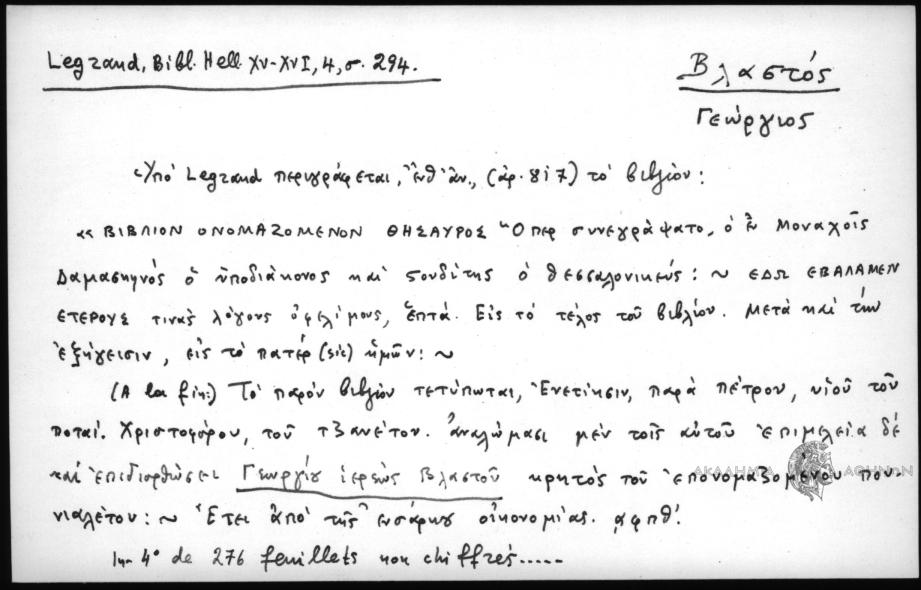 Legrand, Bibl. Hell. XV-XVI, 4, σ. 294.
Βλαστός
Γεώργιος
Ὑπό Legrand περιγράφεται, ἔνθ' ἄν., (ἀρ. 817) τό βιβλίον:
«ΒΙΒΛΙΟΝ ΟΝΟΜΑΖΟΜΕΝΟΝ ΘΗΣΑΥΡΟΣ Ὅπερ συνεγράψατο, ὁ ἐν Μοναχοῖς
Δαμασκηνός ὁ ὑποδιάκονος καί στουδίτης ὁ θεσσαλονικεύς: ~ ΕΔΩ ΕΒΑΛΑΜΕΝ
ΕΤΕΡΟΥΣ τινάς λόγους ὀφελίμους, ἑπτά. Εἰς τό τέλος τοῦ βιβλίου. Μετά καί τήν
ἐξήγεισιν, εἰς τό πατέρ (sic) ἡμῶν: ~
(A la fin:) Τό παρόν βιβλίον τετύπωται, Ἐνετίησιν, παρά πέτρου, υἱοῦ τοῦ
ποταί. Χριστοφόρου, τοῦ τζανέτου. ἀναλώμασι μέν τοῖς αὐτοῦ ἐπιμελεία δέ
καί ἐπιδιορθώσει Γεωργίου ἱερέως Βλαστοῦ κρητός τοῦ ἐπονομαζομένου που-
νιαλέτου: ~ Ἔτει ἀπό τῆς ἐνσάρκου οἰκονομίας. ͵αφπθ'.
In-4° de 276 feuillets non chiffrés.....
ΑΚΑΔΗΜΙΑ ΑΘΗΝΩΝ